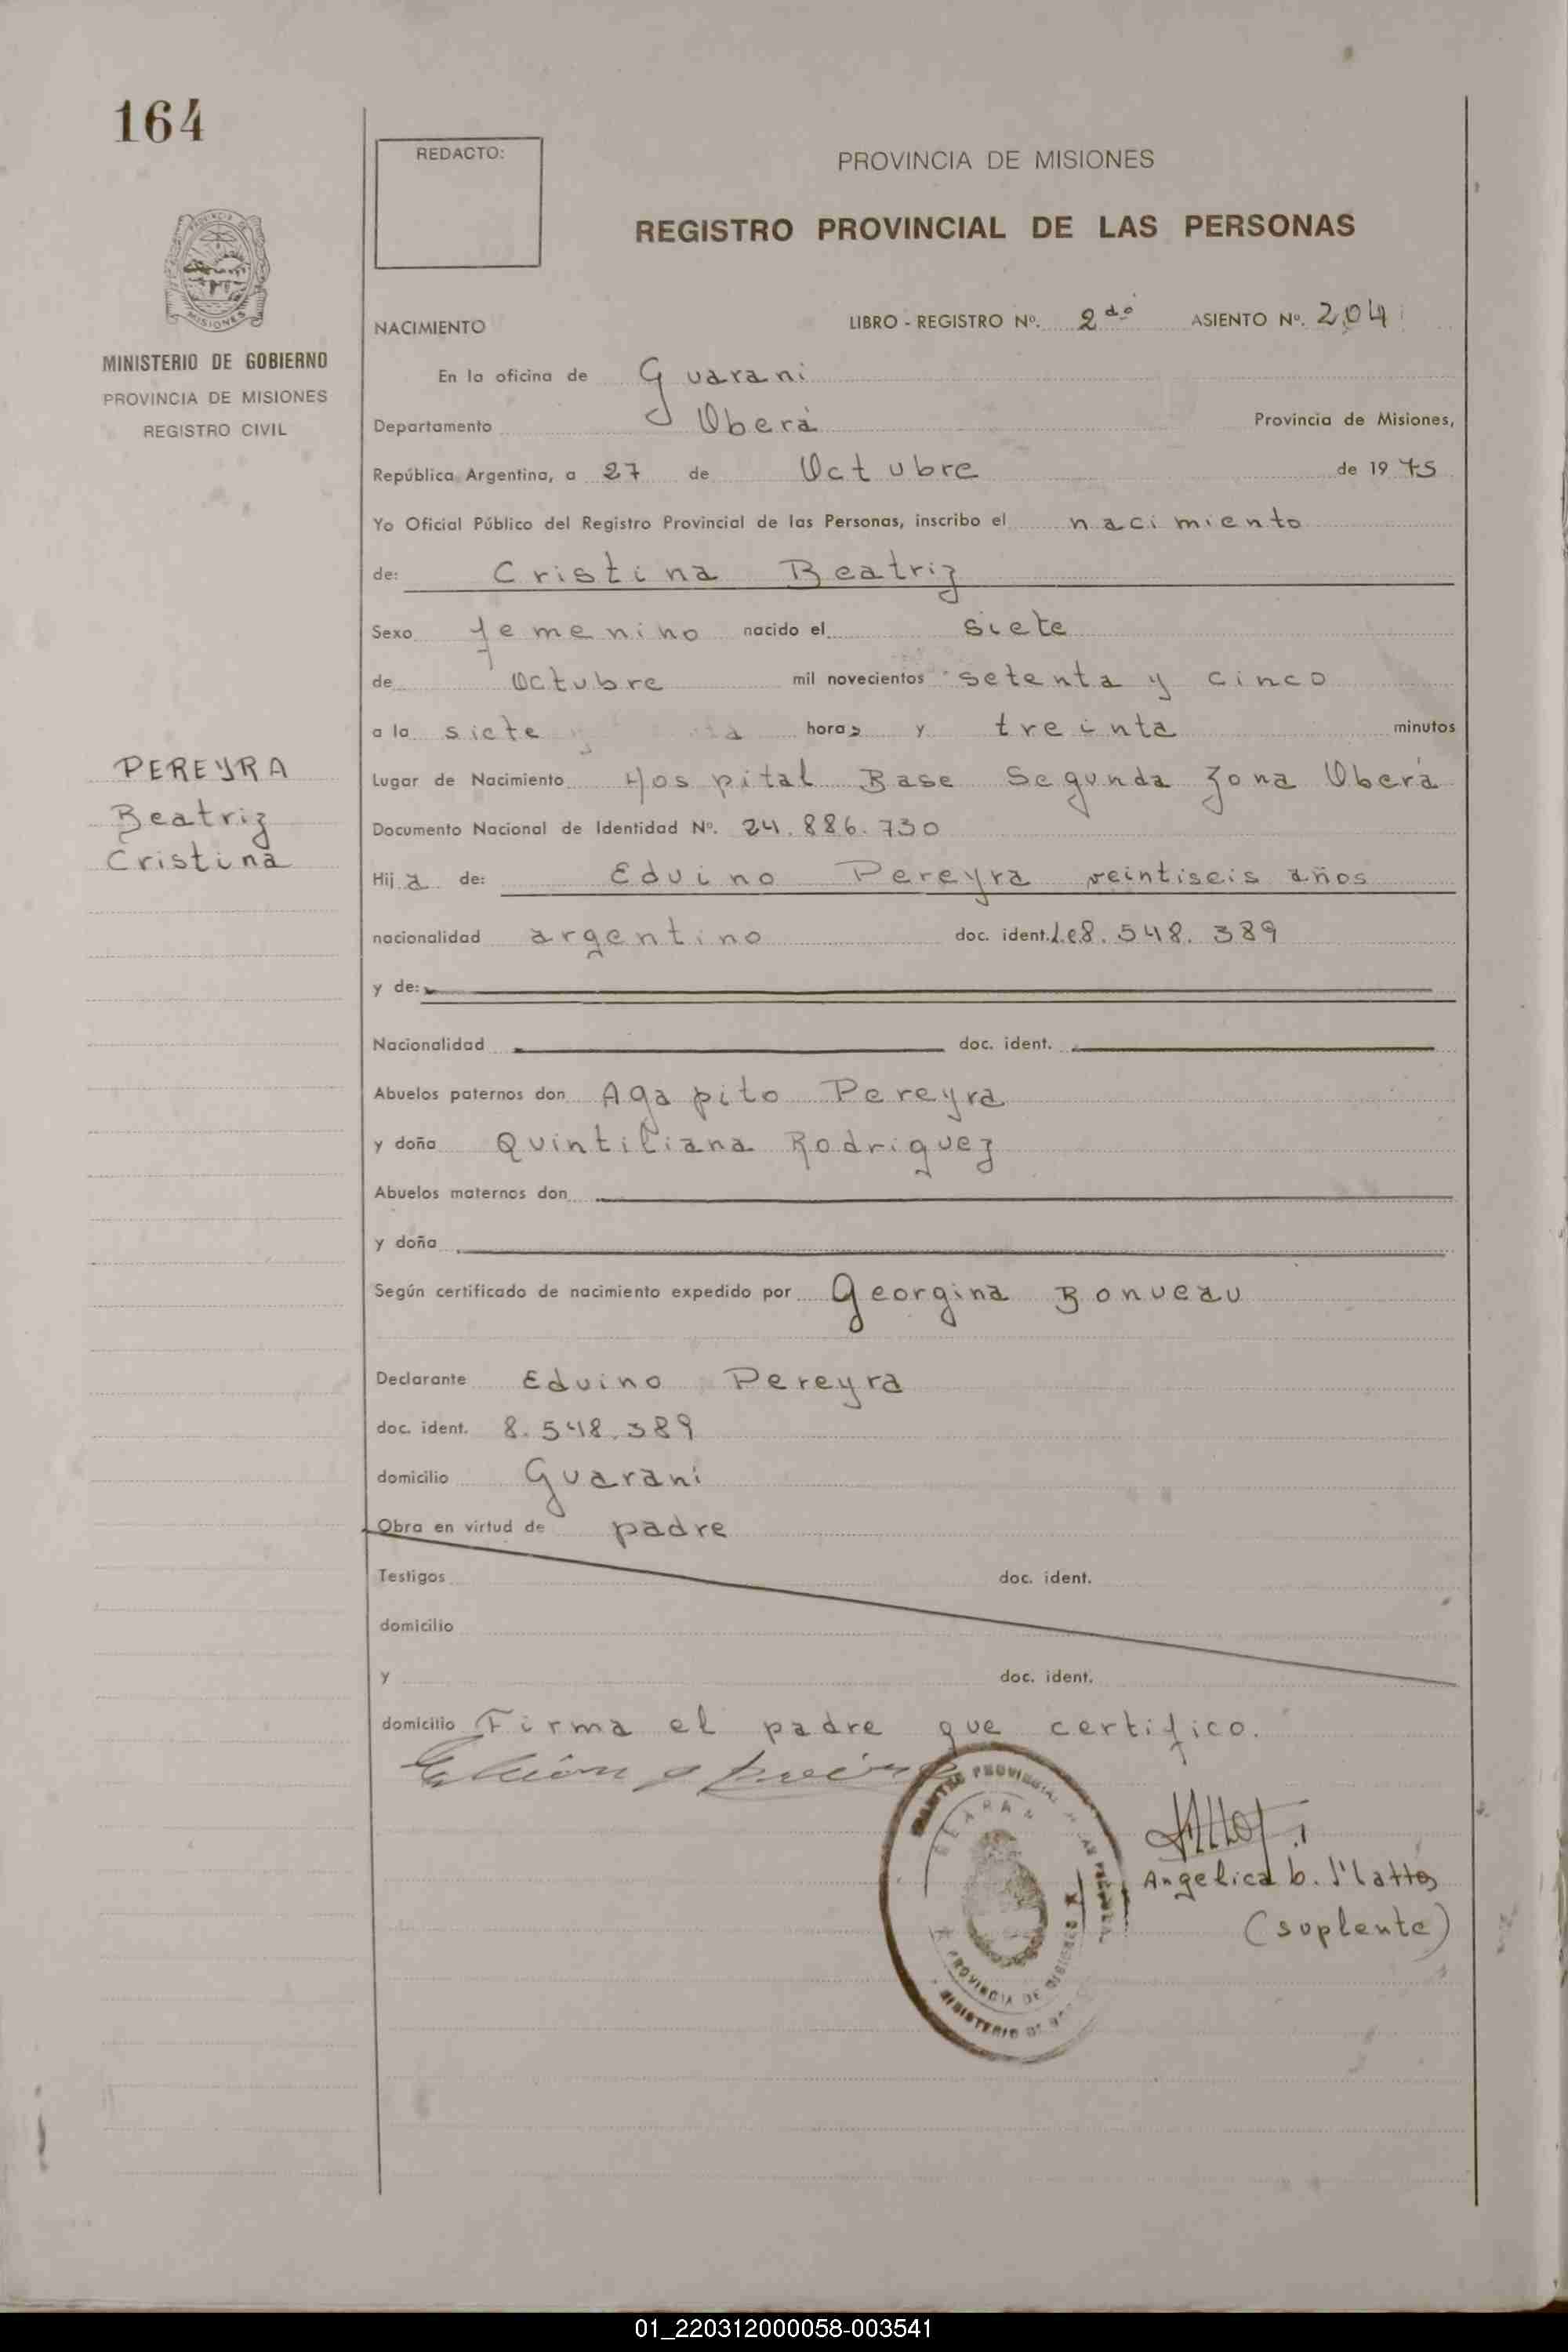 164
REDACTO:
PROVINCIA DE MISIONES
REGISTRO PROVINCIAL DE LAS PERSONAS
MISIONES
MINISTERIO DE GOBIERNO
PROVINCIA DE MISIONES
REGISTRO CIVIL
NACIMIENTO LIBRO - REGISTRO Nº. 2do ASIENTO Nº. 204
En la oficina de Guarani
Departamento Oberá Provincia de Misiones,
República Argentina, a 27 de Octubre de 1975
Yo Oficial Público del Registro Provincial de las Personas, inscribo el nacimiento
de: Cristina Beatriz
Sexo femenino nacido el siete
de Octubre mil novecientos setenta y cinco
a la siete horas y treinta minutos
PEREYRA
Beatriz
Cristina
Lugar de Nacimiento Hospital Base Segunda Zona Oberá
Documento Nacional de Identidad Nº. 24.886.730
Hija de: Eduino Pereyra veintiseis años
nacionalidad argentino doc. ident. L.e 8.548.389
y de:
Nacionalidad doc. ident.
Abuelos paternos don Agapito Pereyra
y doña Quintiliana Rodriguez
Abuelos maternos don
y doña
Según certificado de nacimiento expedido por Georgina Bonveau
Declarante Eduino Pereyra
doc. ident. 8.548.389
domicilio Guarani
Obra en virtud de padre
Testigos doc. ident.
domicilio
y doc. ident.
domicilio Firma el padre que certifico.
PROVINCIA DE MISIONES
MINISTERIO DE
Angelica b. Mattos
(suplente)
01_220312000058-003541